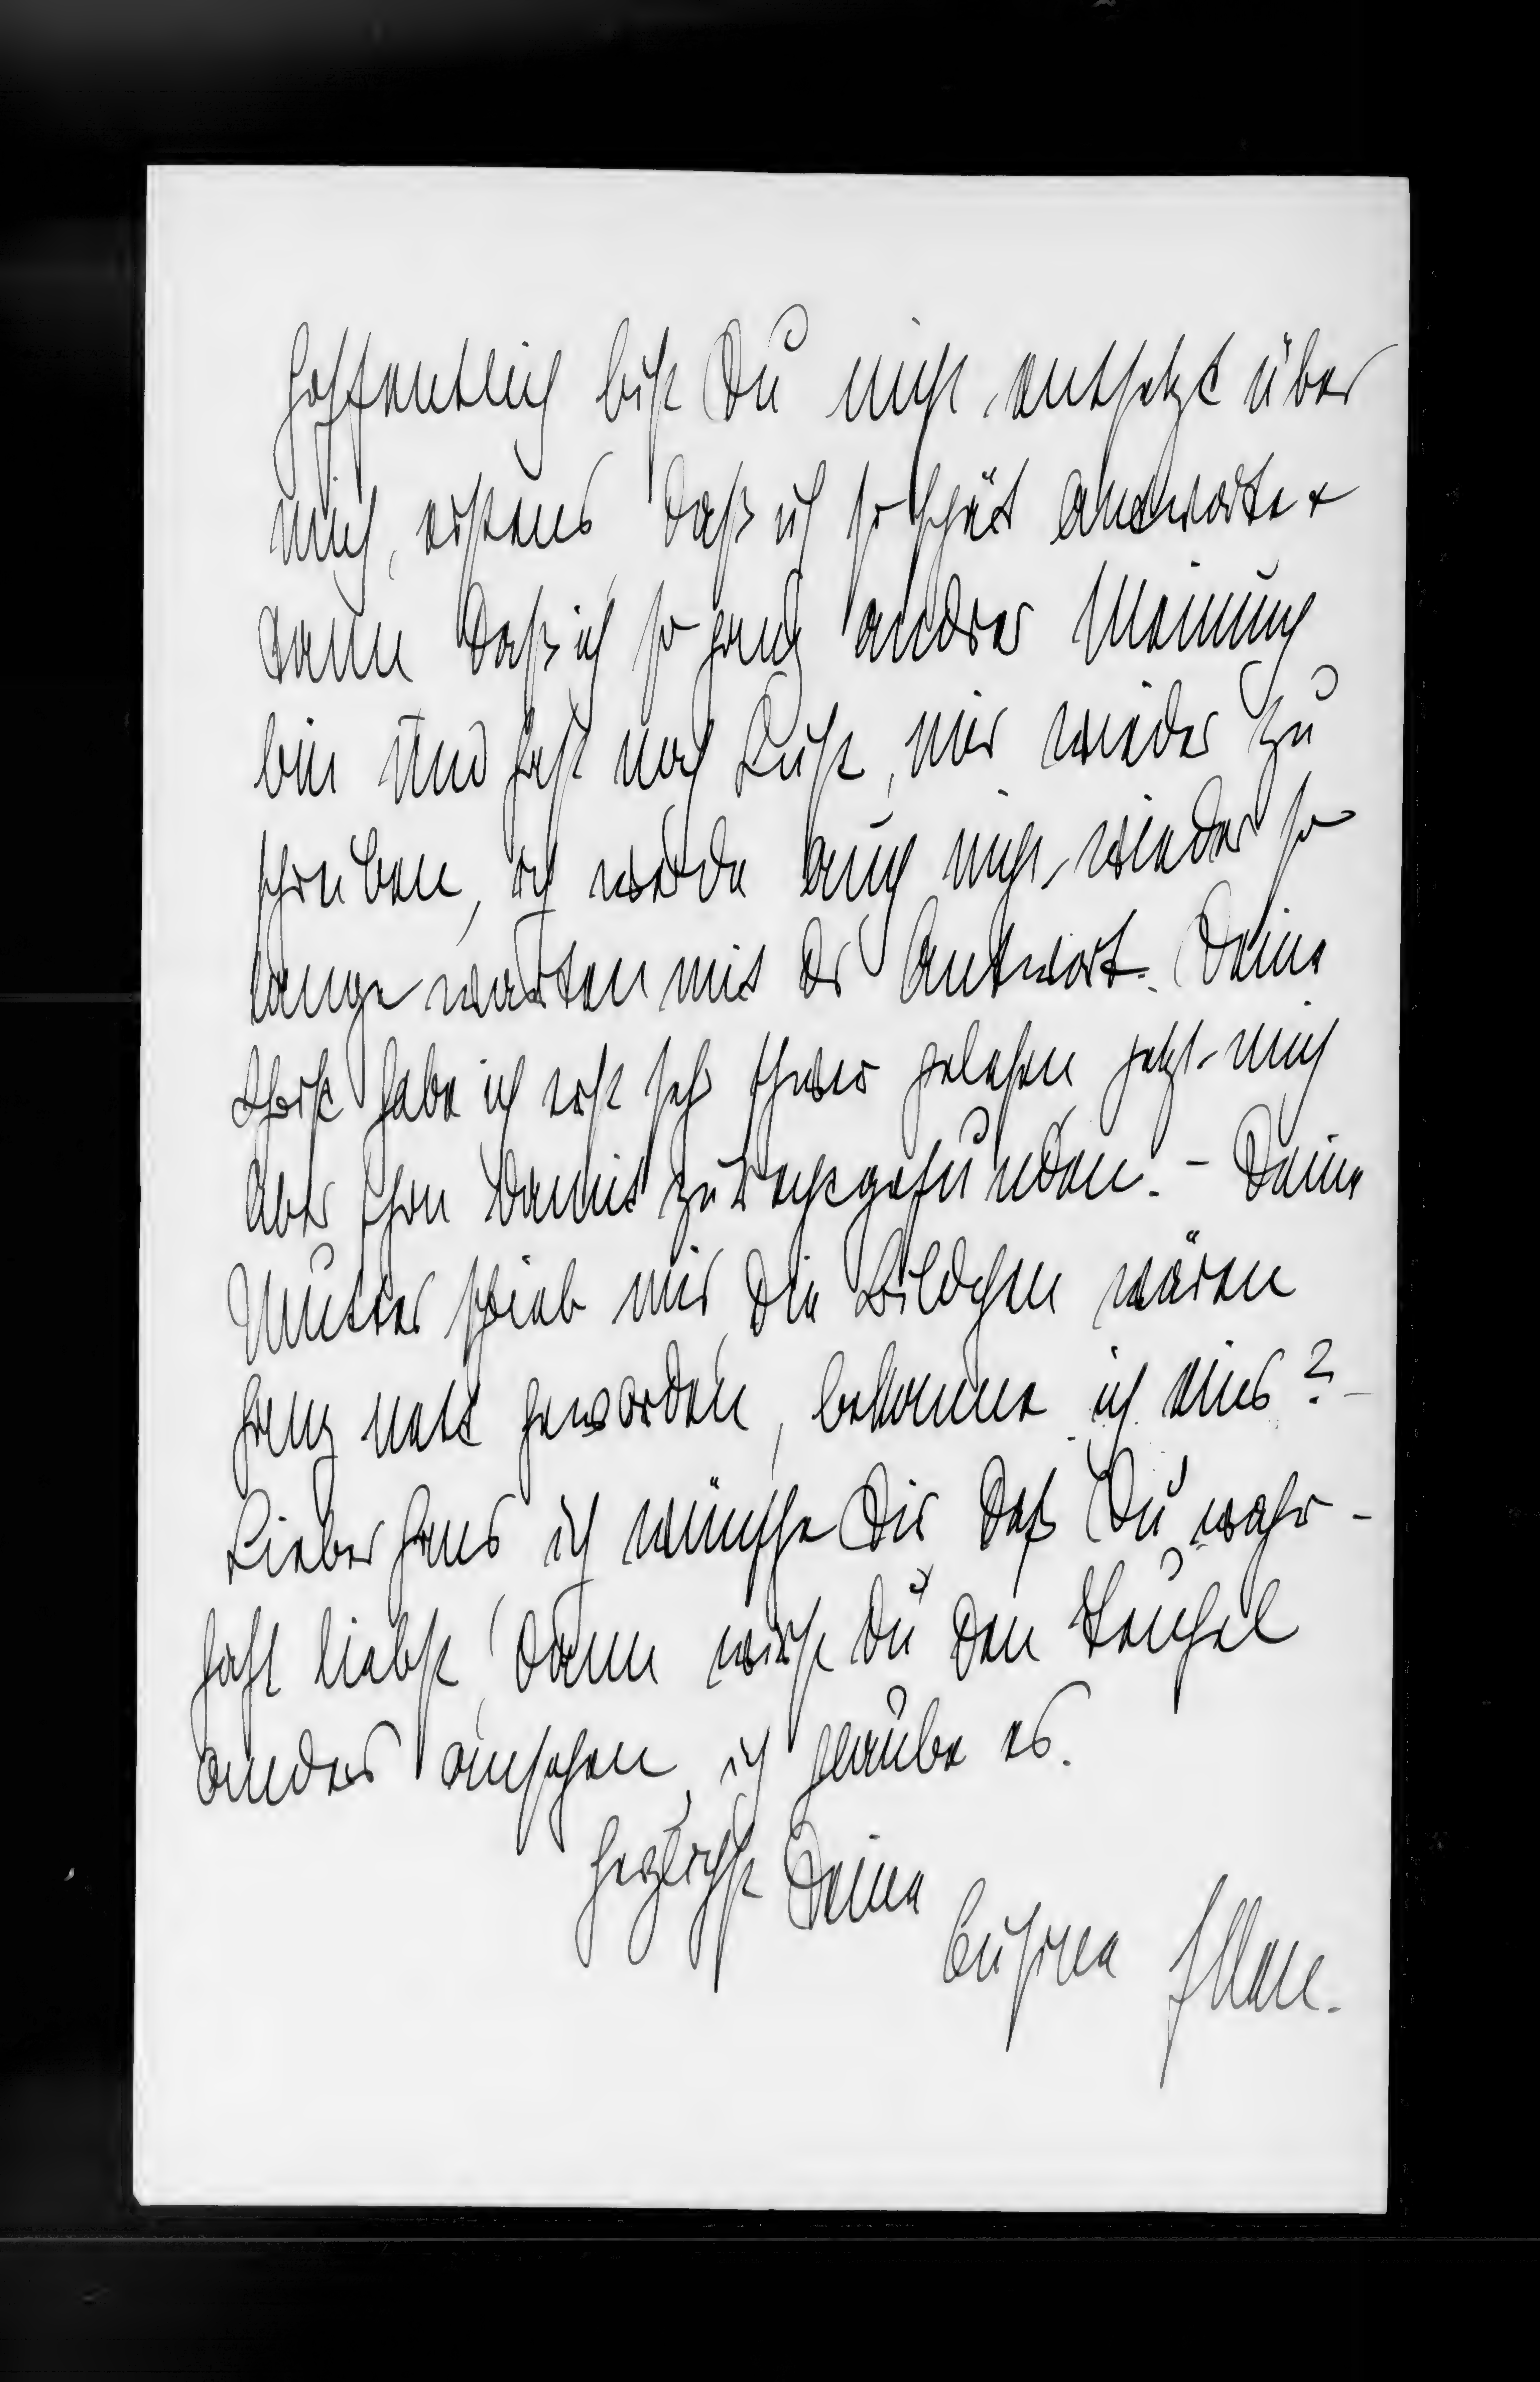 Hoffentlich bist Du nicht entsetzt über
mich, erstens daß ich so spät antworte +
dann daß ich so ganz andrer Meinung
bin und hast noch Lust, mir wieder zu
schreiben, ich werde auch nicht wieder so
lange warten mit dr Antwort. Deine
Schrift habe ich erst sehr schwer gelesen jetzt mich
aber schon damit zurechtgefunden. – Deine
Mutter schrieb mir, die Bildchen wären
ganz nett geworden, bekomme ich eins? –
Lieber Hans ich wünsche Dir daß Du wahr-
haft liebst, dann wirst Du den
anders ansehen, ich glaube es.
Herzlichst Deine
Cusine Ellen.